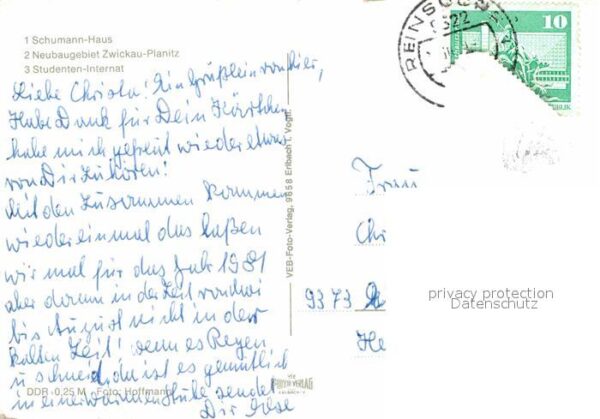 1 Schumann-Haus
2 Neubaugebiet Zwickau-Planitz
3 Studenten-Internat
Liebe Christa! Ein Grüßlein von hier,
Habe Dank für Dein Kärtchen
habe mich gefreut wieder etwas
von Dir zu hören!
Mit den Zusammen kommen
wieder einmal das laßen
wir mal für das Jahr 1981
aber dann in der Zeit von Mai
bis August nicht in der
kalten Zeit! wenn es Regen
u schneid, da ist es gemütlich
in einer warmen Stube, sendet
Dir
DDR 0,25 M Foto: Hoffmann
VEB-Foto-Verlag, 9658 Erlbach i. Vogtl.
FOTO VERLAG
REINSDORF
10
Frau
Ch
9373
He
privacy protection
Datenschutz